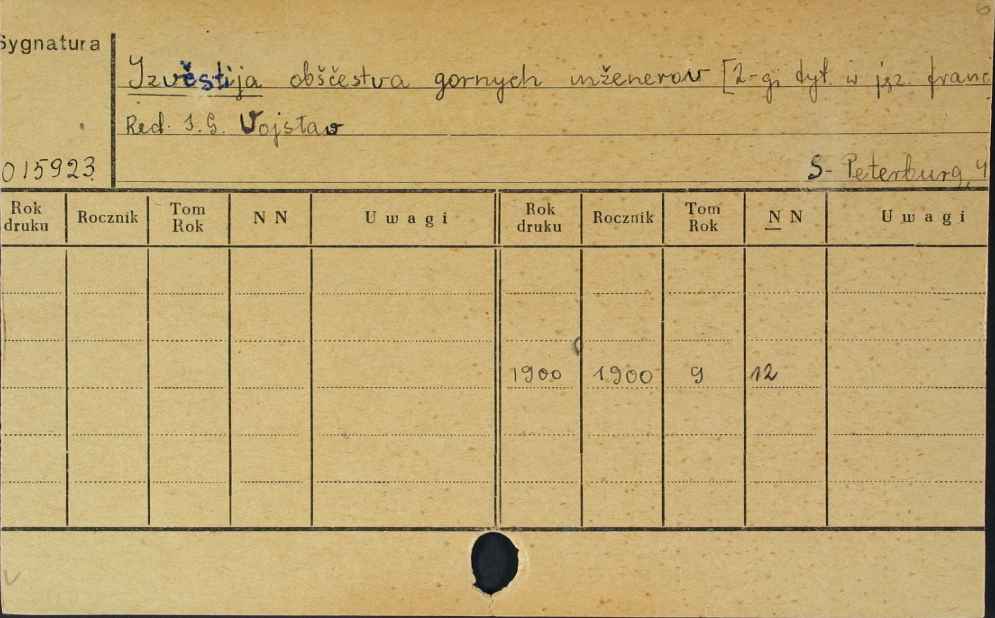 Sygnatura
Izvěstija obščestva gornych inženerov [2-gi tyt. w jęz. franc
Red. I.G. Vojslav
015923
S-Peterburg,
Rok druku Rocznik Tom Rok N N Uwagi Rok druku Rocznik Tom Rok N N Uwagi
1900 1900 9 12